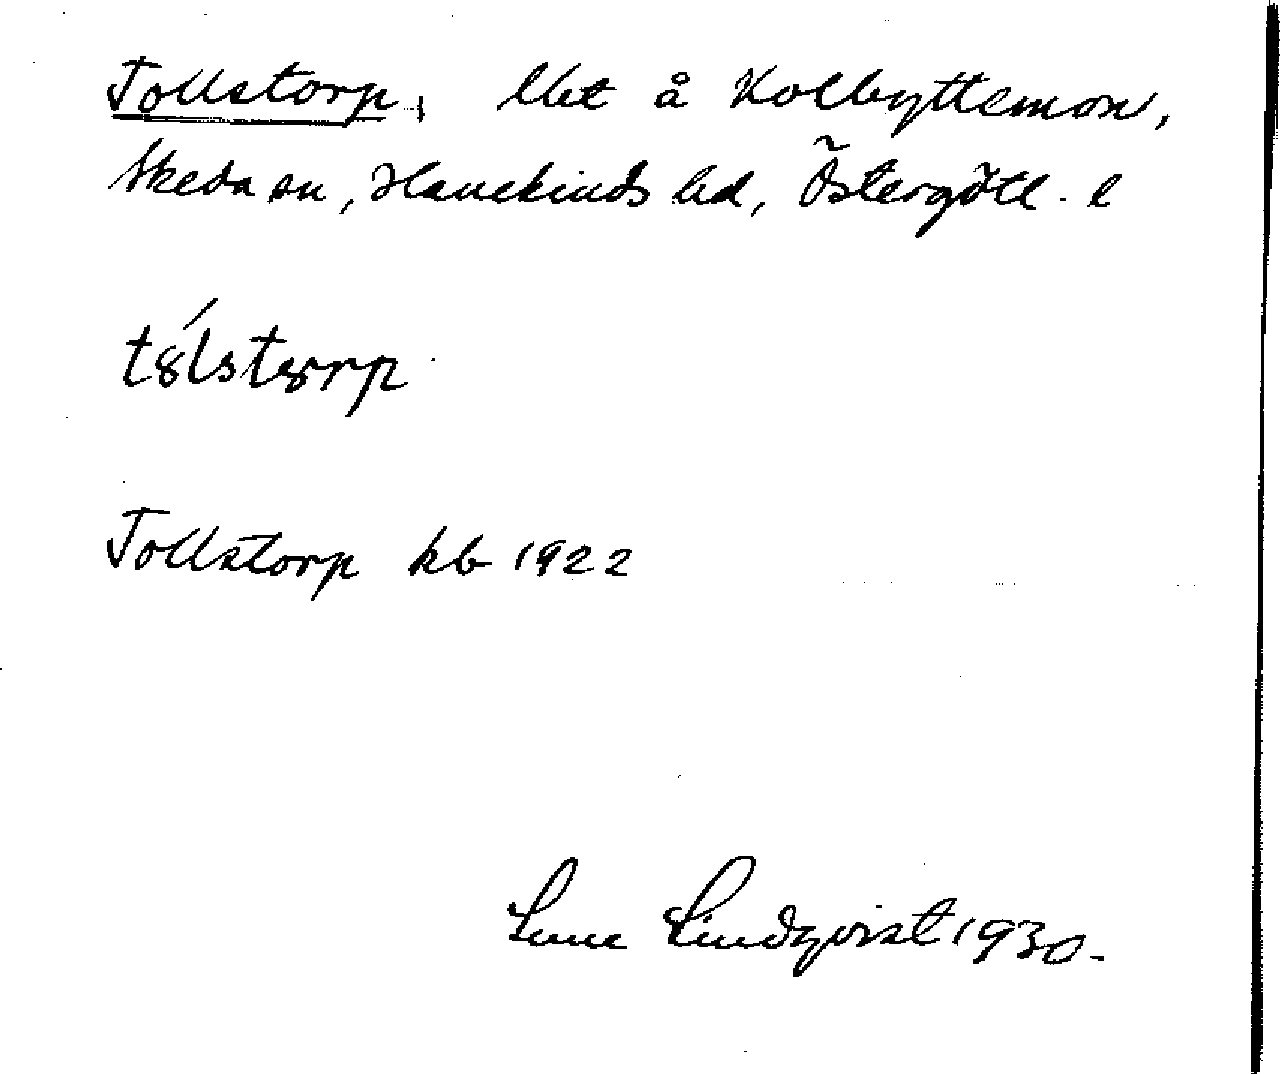 Tollstorp, lht å Kolbyttemon,
Skeda sn, Hanekinds hd, Östergötl. l
tȣ́lstȣrp
Tollstorp kb 1922
Sune Lindqvist 1930.